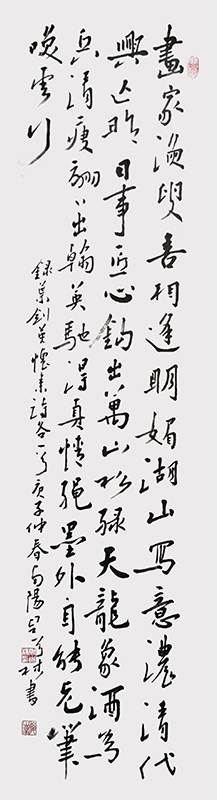 畫家漁叟喜相逢明媚湖山寫意濃清代
興亡昨日事匠心鈎出萬山松綠天龍象酒為
兵清瘦翩出翰英馳得真情繩墨外自能筆
喚雲行
錄葉劍英懷素詩各一首庚子仲春南陽林書